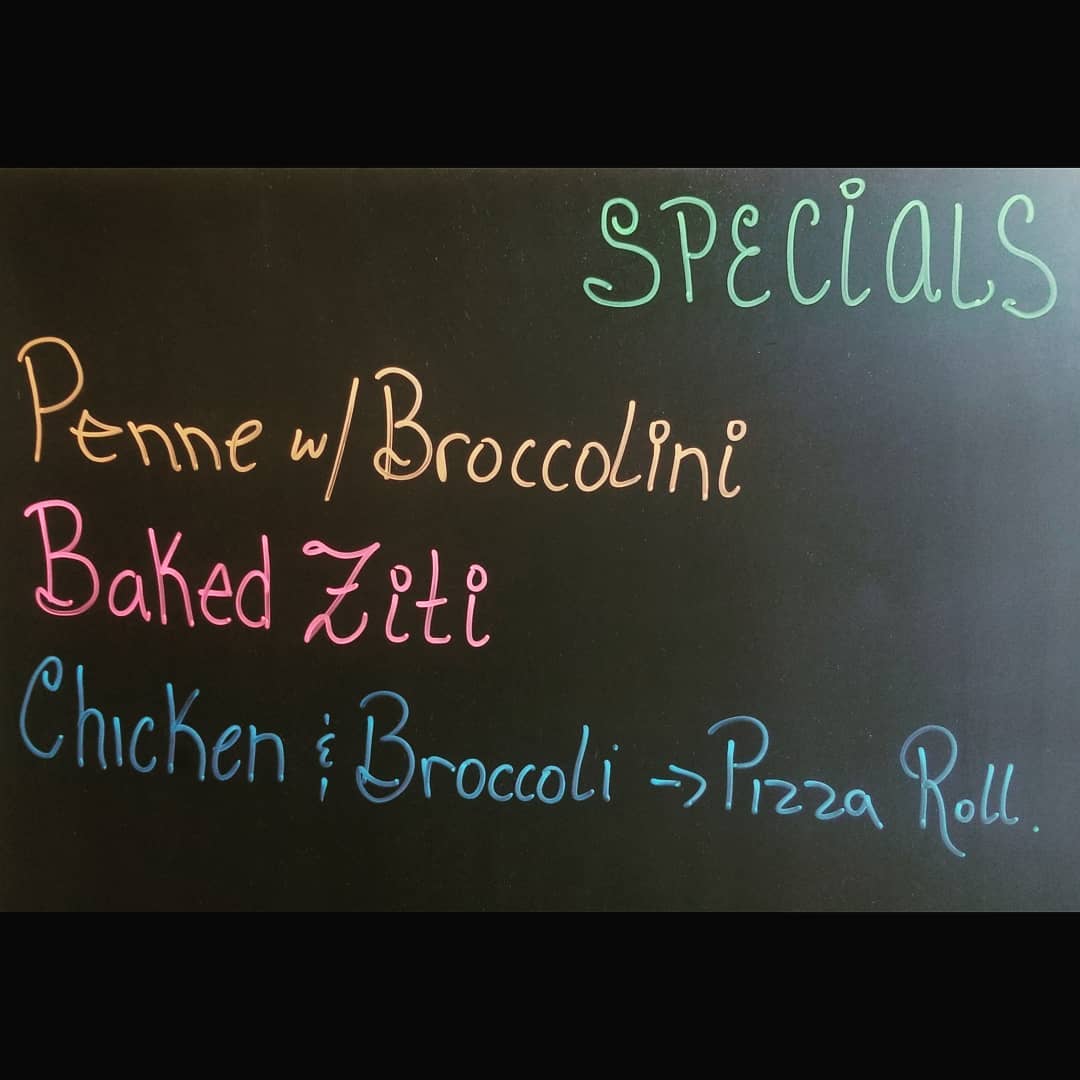 SPECiaLS
Penne w/ Broccolini
Baked Ziti
Chicken & Broccoli -> Pizza Roll.